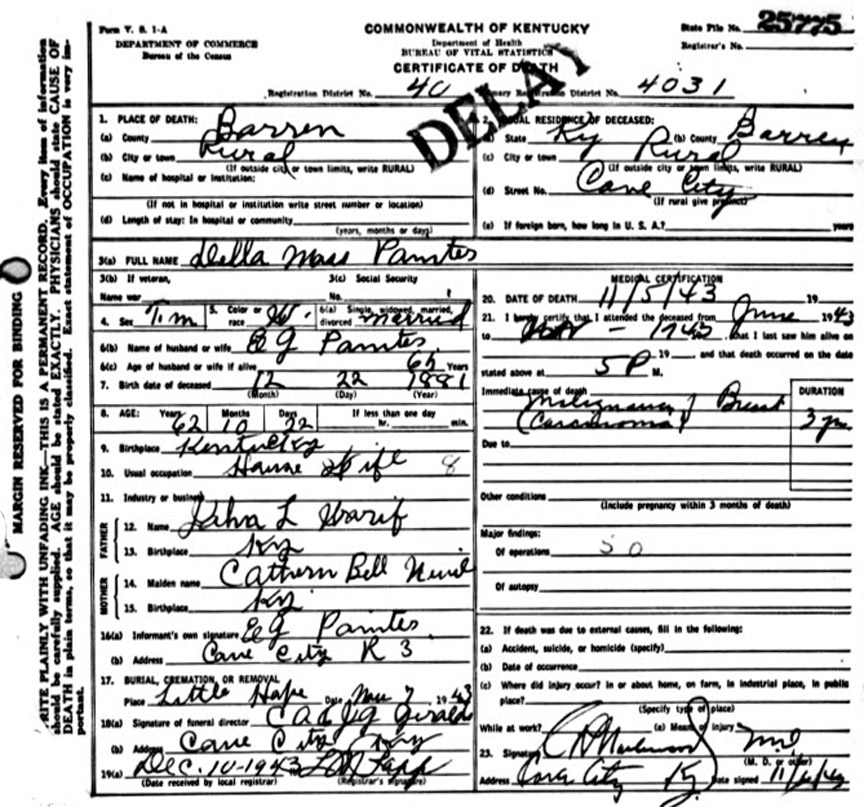 Form V. S. 1-A
DEPARTMENT OF COMMERCE
Bureau of the Census
COMMONWEALTH OF KENTUCKY
Department of Health
BUREAU OF VITAL STATISTICS
CERTIFICATE OF DEATH
State File No. 25775
Registrar's No.
Registration District No. 40 Primary Registration District No. 4031
DELAY
MARGIN RESERVED FOR BINDING
WRITE PLAINLY WITH UNFADING INK—THIS IS A PERMANENT RECORD. Every item of information
should be carefully supplied. AGE should be stated EXACTLY. PHYSICIANS should state CAUSE OF
DEATH in plain terms, so that it may be properly classified. Exact statement of OCCUPATION is very im-
portant.
1. PLACE OF DEATH:
(a) County Barren
(b) City or town Rural
(If outside city or town limits, write RURAL)
(c) Name of hospital or institution:
(If not in hospital or institution write street number or location)
(d) Length of stay: In hospital or community
(years, months or days)
2. USUAL RESIDENCE OF DECEASED:
(a) State Ky (b) County Barren
(c) City or town Rural
(If outside city or town limits, write RURAL)
(d) Street No. Cave City
(If rural give precinct)
(e) If foreign born, how long in U. S. A.? years
3(a) FULL NAME Della Mass Painter
3(b) If veteran,
Name war
3(c) Social Security
No.
4. Sex 5. Color or race W. 6(a) Single, widowed, married, divorced married
6(b) Name of husband or wife E G Painter
6(c) Age of husband or wife if alive 65 Years
7. Birth date of deceased 12 22 1881
(Month) (Day) (Year)
8. AGE: Years 62 Months 10 Days 22 If less than one day hr. min.
9. Birthplace Kentucky
10. Usual occupation House Wife 8
11. Industry or business
FATHER
12. Name L
13. Birthplace Ky
MOTHER
14. Maiden name Cathern Bell
15. Birthplace Ky
16(a) Informant's own signature E G Painter
(b) Address Cave City R 3
17. BURIAL, CREMATION, OR REMOVAL
Place Little Hope Date Nov 7 1943
18(a) Signature of funeral director
(b) Address Cave City Ky
19(a) Dec. 10-1943
(Date received by local registrar) (Registrar's signature)
MEDICAL CERTIFICATION
20. DATE OF DEATH 11/5/43 19
21. I hereby certify that I attended the deceased from June 1943
to Nov - 1943, that I last saw him alive on
19, and that death occurred on the date
stated above at 5 P M.
Immediate cause of death
Malignancy of Breast
(Carcinoma)
DURATION
3 yrs
Due to
Other conditions
(Include pregnancy within 3 months of death)
Major findings:
Of operations 50
Of autopsy
22. If death was due to external causes, fill in the following:
(a) Accident, suicide, or homicide (specify)
(b) Date of occurrence
(c) Where did injury occur? In or about home, on farm, in industrial place, in public
place?
(Specify type of place)
While at work? (e) Means of injury
23. Signature MD
(M. D. or other)
Address Cave City Ky Date signed